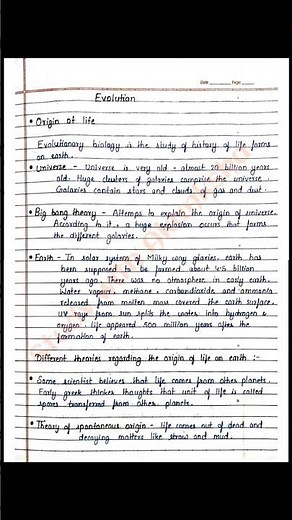 Date Page
Evolution
• Origin of life
Evolutionary biology is the study of history of life forms
on earth.
• Universe - Universe is very old - almost 20 billion years
old. Huge clusters of galaxies comprise the universe.
Galaxies contain stars and clouds of gas and dust.
• Big bang theory - Attemps to explain the origin of universe.
According to it, a huge explosion occurs that forms
the different galaxies.
• Earth - In solar system of Milky way glaries, earth has
been supposed to be formed about 4.5 billion
years ago. There was no atmosphere in early earth.
Water vapour, methane, carbondioxide and ammonia
released from molten mass covered the earth surface.
UV rays from sun splits the water into hydrogen &
oxygen. life appeared 500 million years after the
formation of earth.
Different theories regarding the origin of life on earth :-
• Some scientist believes that life comes from other planets.
Early greek thinkes thoughts that unit of life is called
spores transferred from other planets.
• Theory of spontaneous origin - life comes out of dead and
decaying matters like straw and mud.